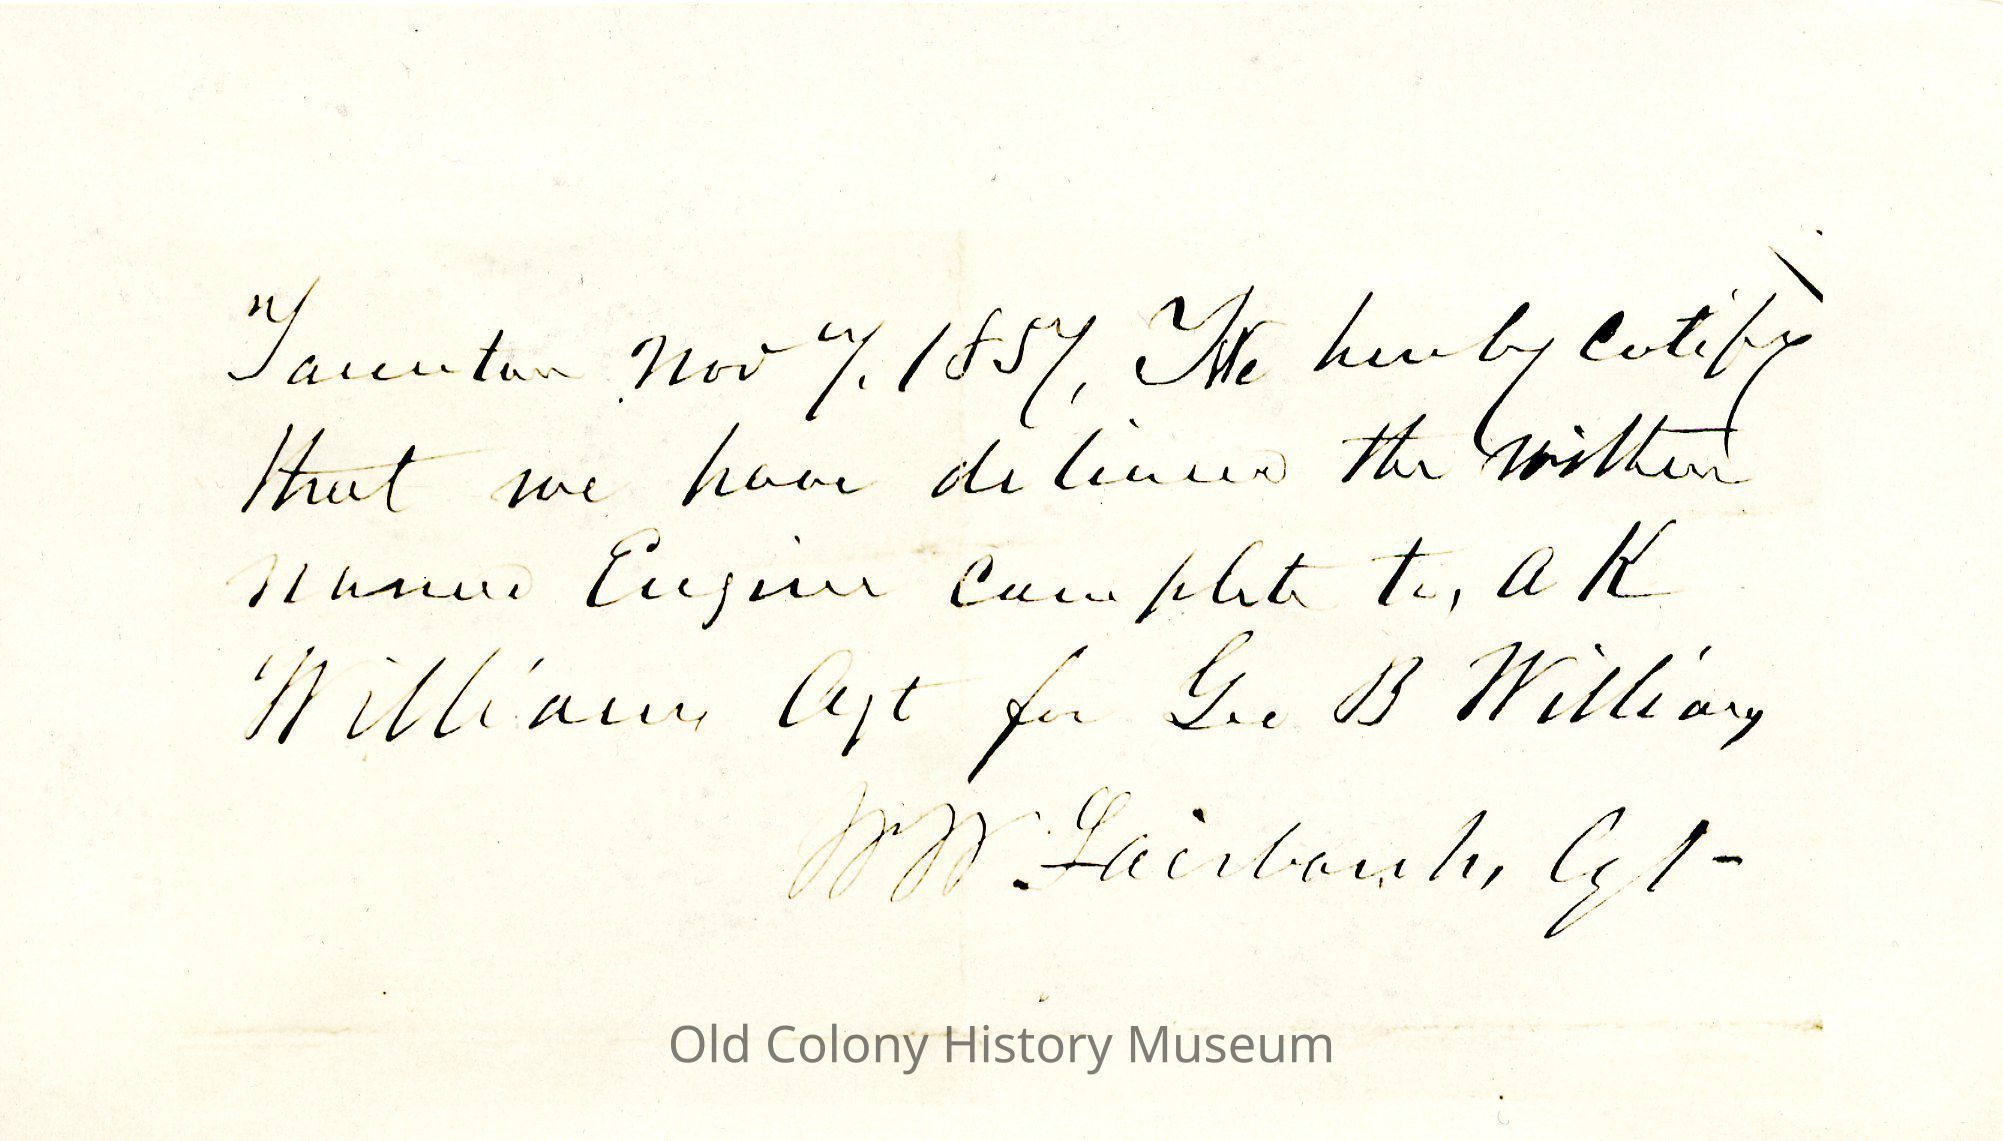 Taunton Nov 7, 1857, We hereby certify
that we have delivered the within
named Engine complete to, A K
Williams Agt for Geo B Williams
W W Fairbanks, Agt -
Old Colony History Museum